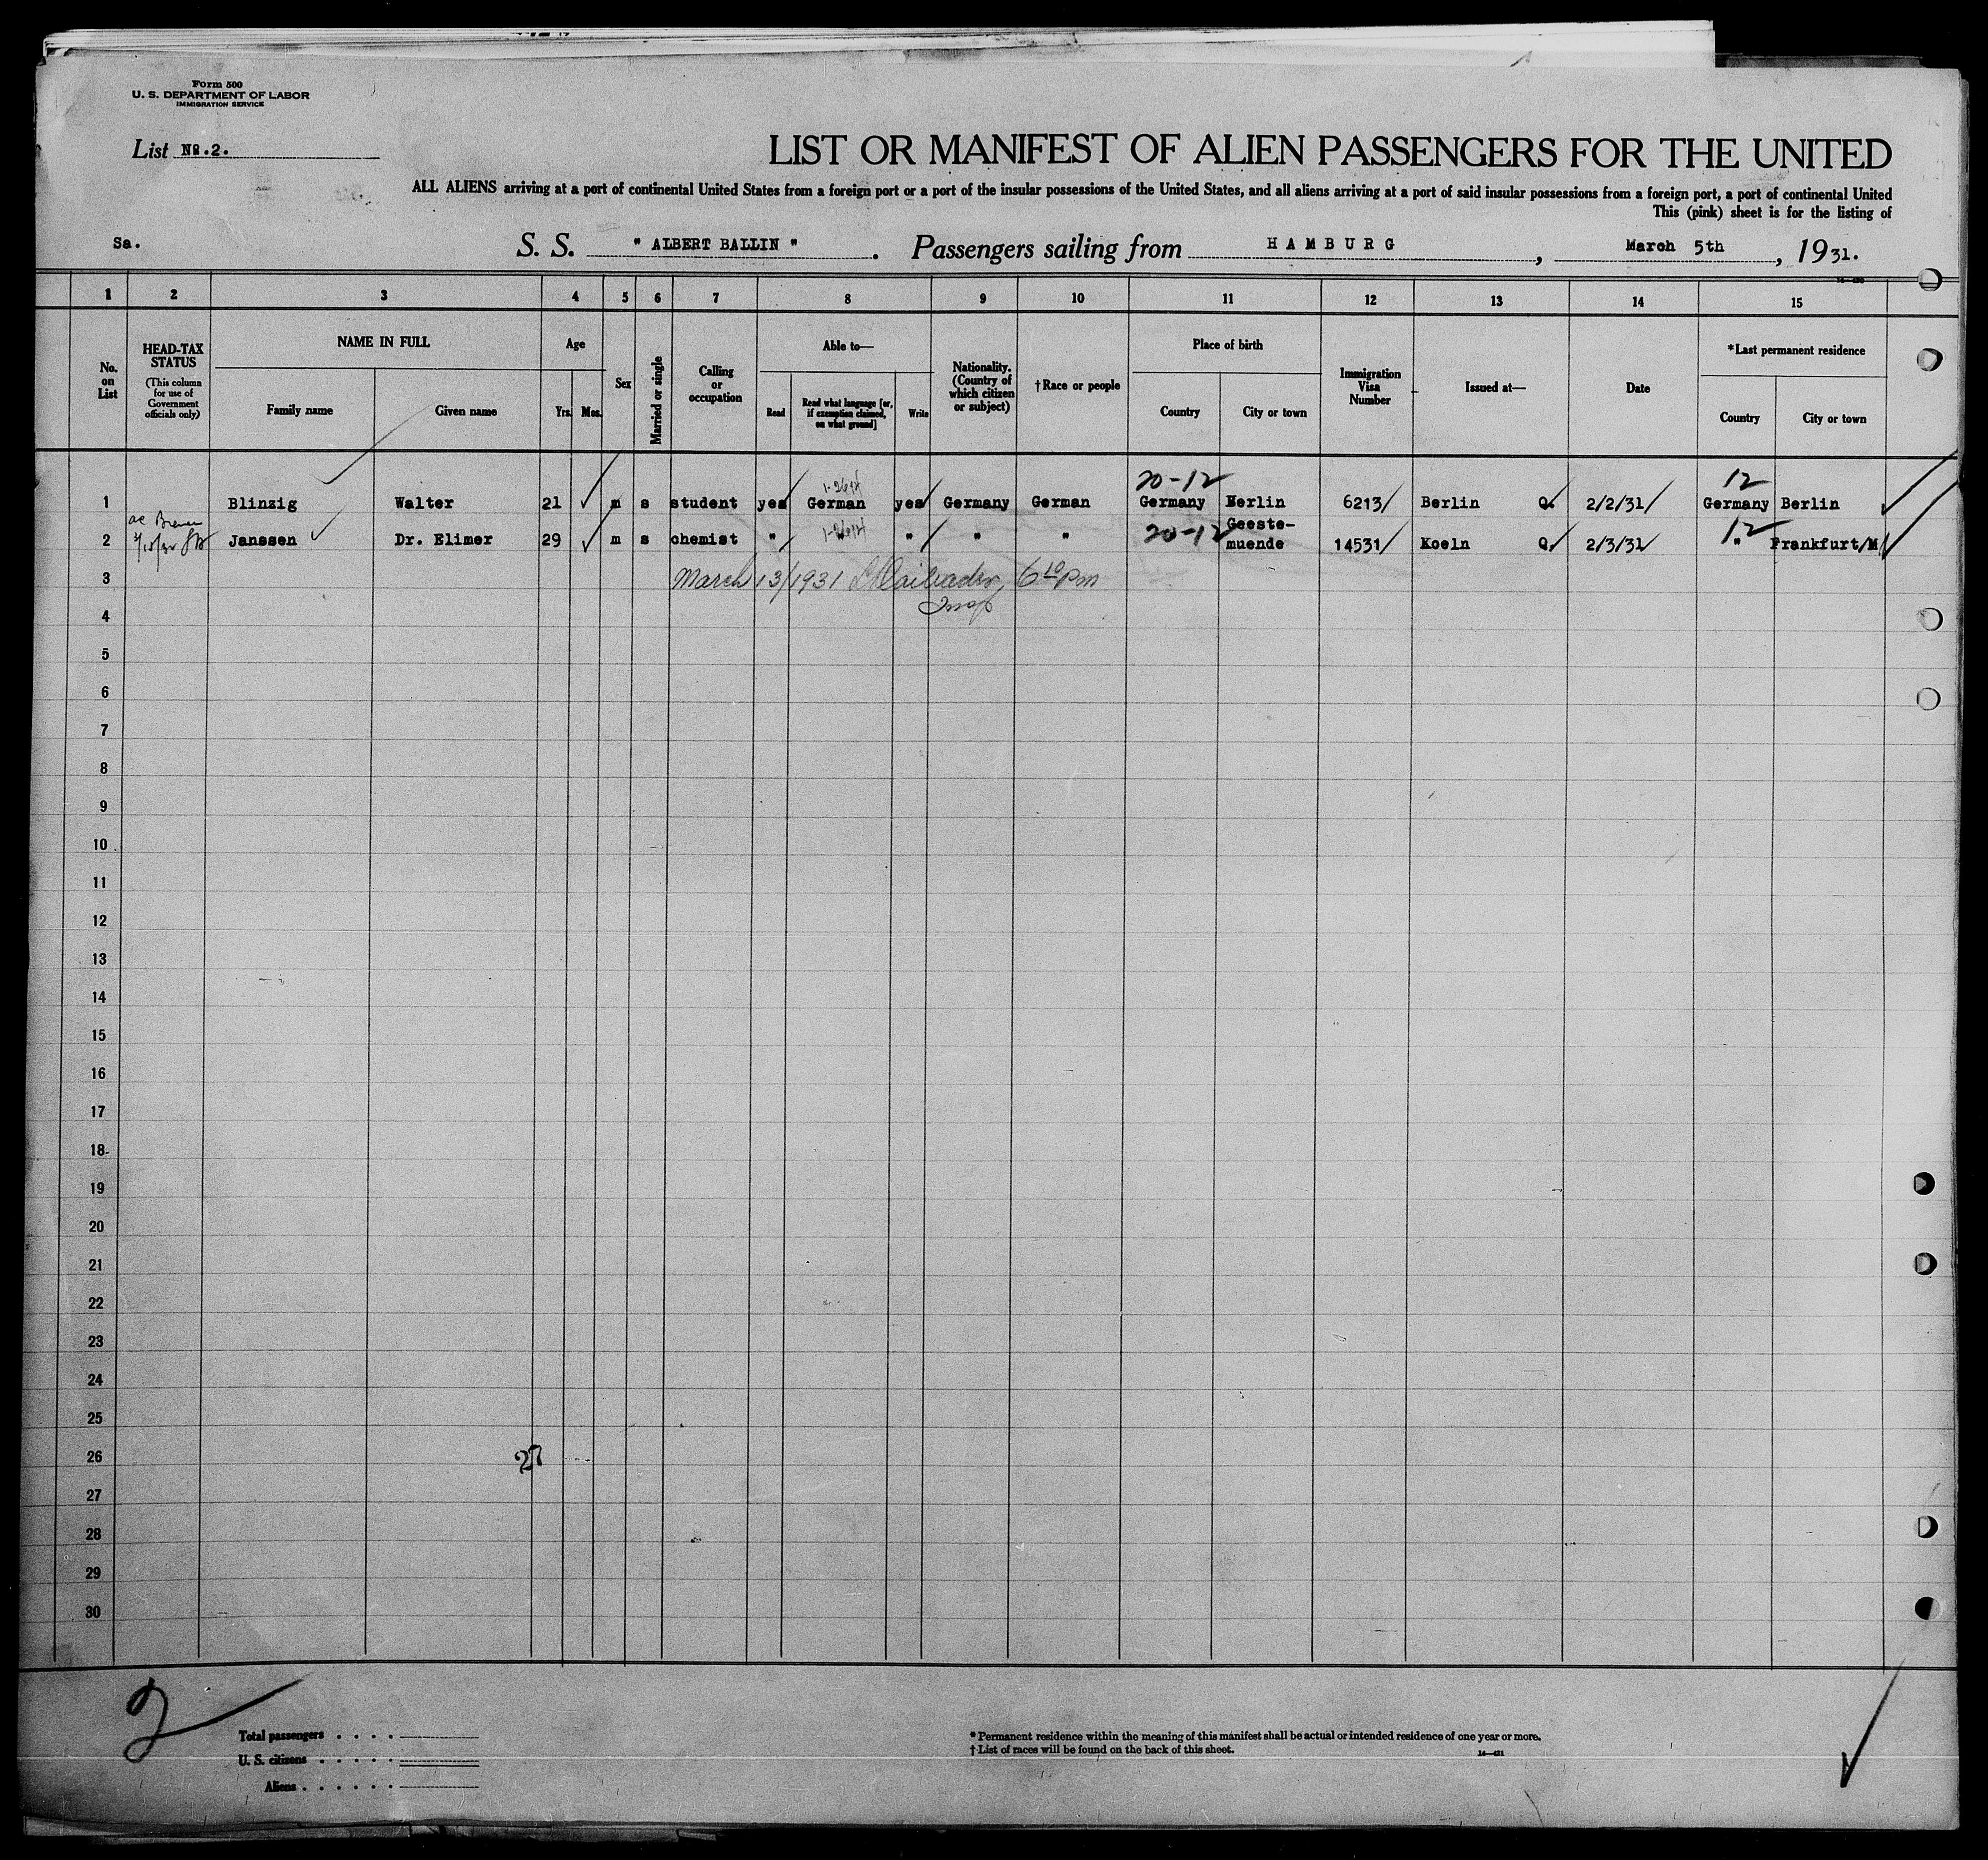 Form 500
U. S. DEPARTMENT OF LABOR
IMMIGRATION SERVICE
List No.2.
LIST OR MANIFEST OF ALIEN PASSENGERS FOR THE UNITED
ALL ALIENS arriving at a port of continental United States from a foreign port or a port of the insular possessions of the United States, and all aliens arriving at a port of said insular possessions from a foreign port, a port of continental United
This (pink) sheet is for the listing of
Sa. S. S. " ALBERT BALLIN ". Passengers sailing from HAMBURG, March 5th, 1931.
1 2 3 4 5 6 7 8 9 10 11 12 13 14 15
No. on List
HEAD-TAX STATUS (This column for use of Government officials only)
NAME IN FULL Family name Given name
Age Yrs. Mos.
Sex
Married or single
Calling or occupation
Able to— Read Read what language [or, if exemption claimed, on what ground] Write
Nationality. (Country of which citizen or subject)
†Race or people
Place of birth Country City or town
Immigration Visa Number
Issued at—
Date
*Last permanent residence Country City or town
20-12 12
1 Blinzig Walter 21 m s student yes German yes Germany German Germany Berlin 6213 Berlin Q. 2/2/31 Germany Berlin
2 Janssen Dr. Elimer 29 m s chemist " " " " " 20-12 Geeste-muende 14531 Koeln Q. 2/3/31 12 " Frankfurt/M
3 March 13/1931 6 10 pm
4 Insp
5
6
7
8
9
10
11
12
13
14
15
16
17
18
19
20
21
22
23
24
25
26 27
27
28
29
30
2
Total passengers . . . .
U. S. citizens . . . . .
Aliens . . . . . .
*Permanent residence within the meaning of this manifest shall be actual or intended residence of one year or more.
†List of races will be found on the back of this sheet.
14—431